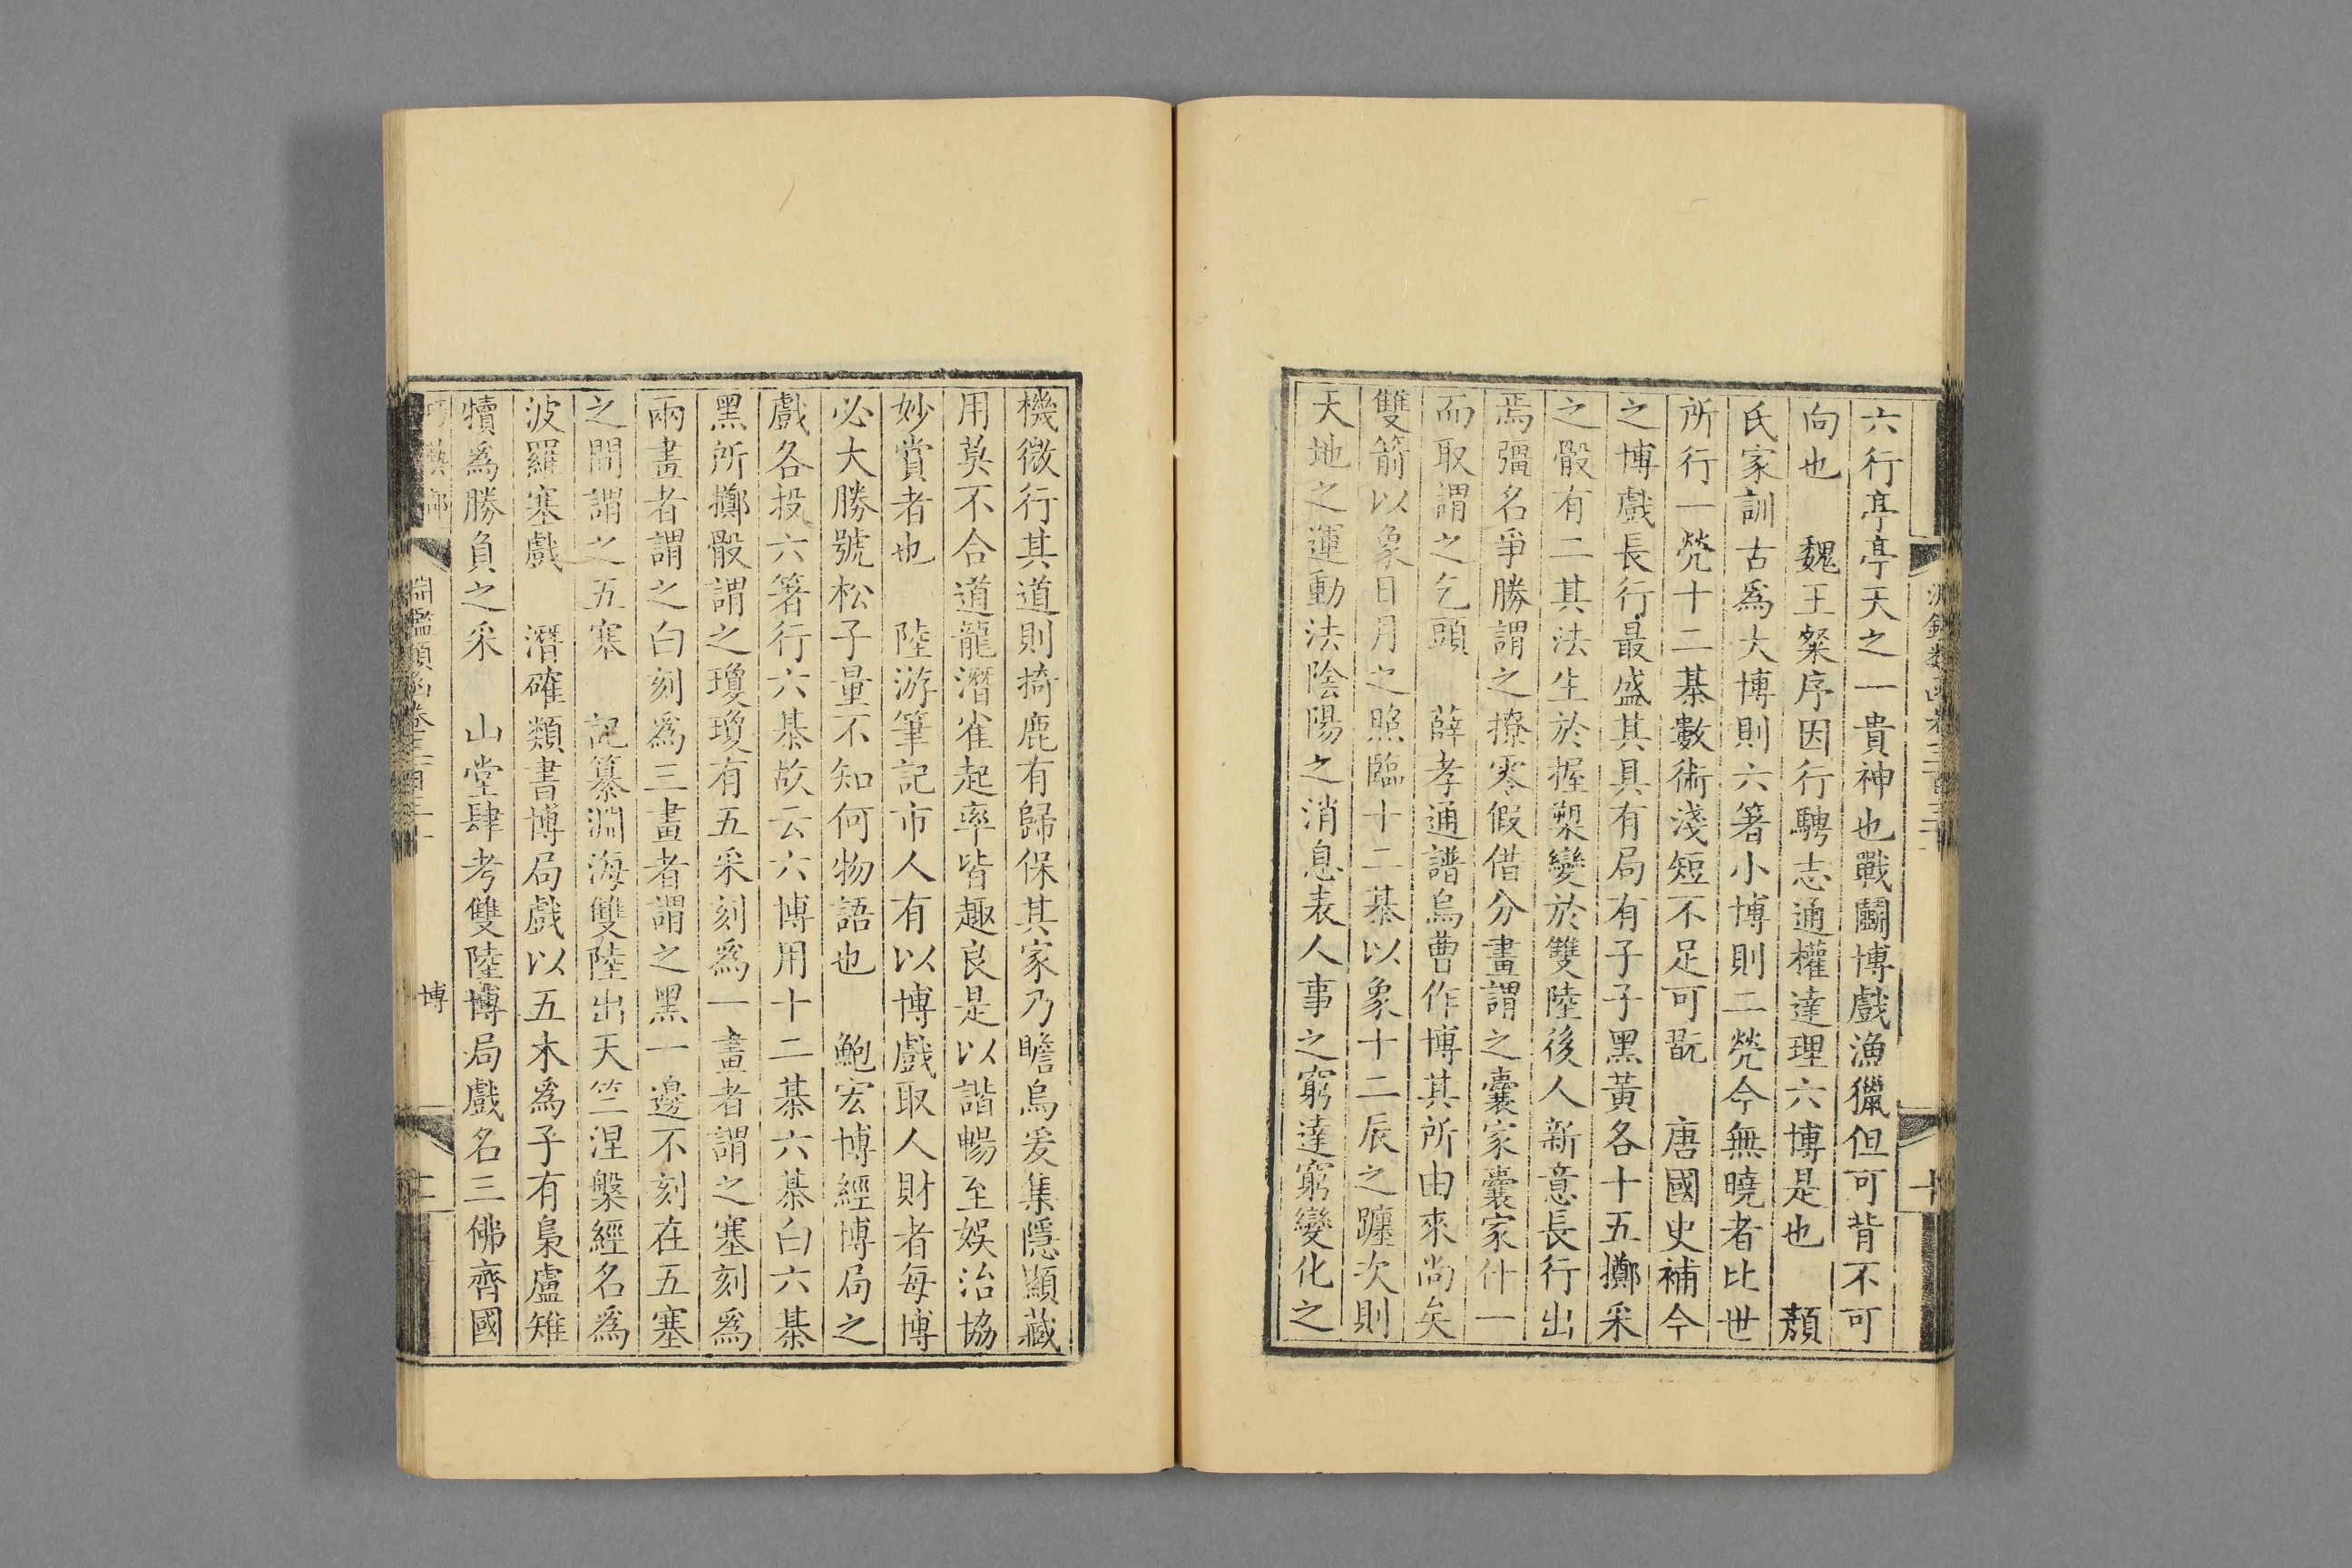 六行亭亭天之一貴神也戰鬭博戲漁獵但可背不可
向也　魏王粲序因行騁志通權達理六博是也　顏
氏家訓古爲大博則六箸小博則二焭今無曉者比世
所行一焭十二棊數術淺短不足可翫　唐國史補今
之博戲長行最盛其具有局有子子黑黃各十五擲采
之骰有二其法生於握槊變於雙陸後人新意長行出
焉彊名爭勝謂之撩零假借分畫謂之囊家囊家什一
而取謂之乞頭　薛孝通譜烏曹作博其所由來尚矣
雙箭以象日月之照臨十二棊以象十二辰之躔次則
天地之運動法陰陽之消息表人事之窮達窮變化之
十
機微行其道則掎鹿有歸保其家乃瞻烏爰集隱顯藏
用莫不合道龍潛雀起率皆趣良是以諧暢至娛洽協
妙賞者也　陸游筆記市人有以博戲取人財者每博
必大勝號松子量不知何物語也　鮑宏博經博局之
戲各投六箸行六棊故云六博用十二棊六棊白六棊
黑所擲骰謂之瓊瓊有五采刻爲一畫者謂之塞刻爲
兩畫者謂之白刻爲三畫者謂之黑一邊不刻在五塞
之間謂之五塞　記纂淵海雙陸出天竺涅槃經名爲
波羅塞戲　潛確類書博局戲以五木爲子有梟盧雉
犢爲勝負之采　山堂肆考雙陸博局戲名三佛齊國
淵鑑類函卷三百三十
博